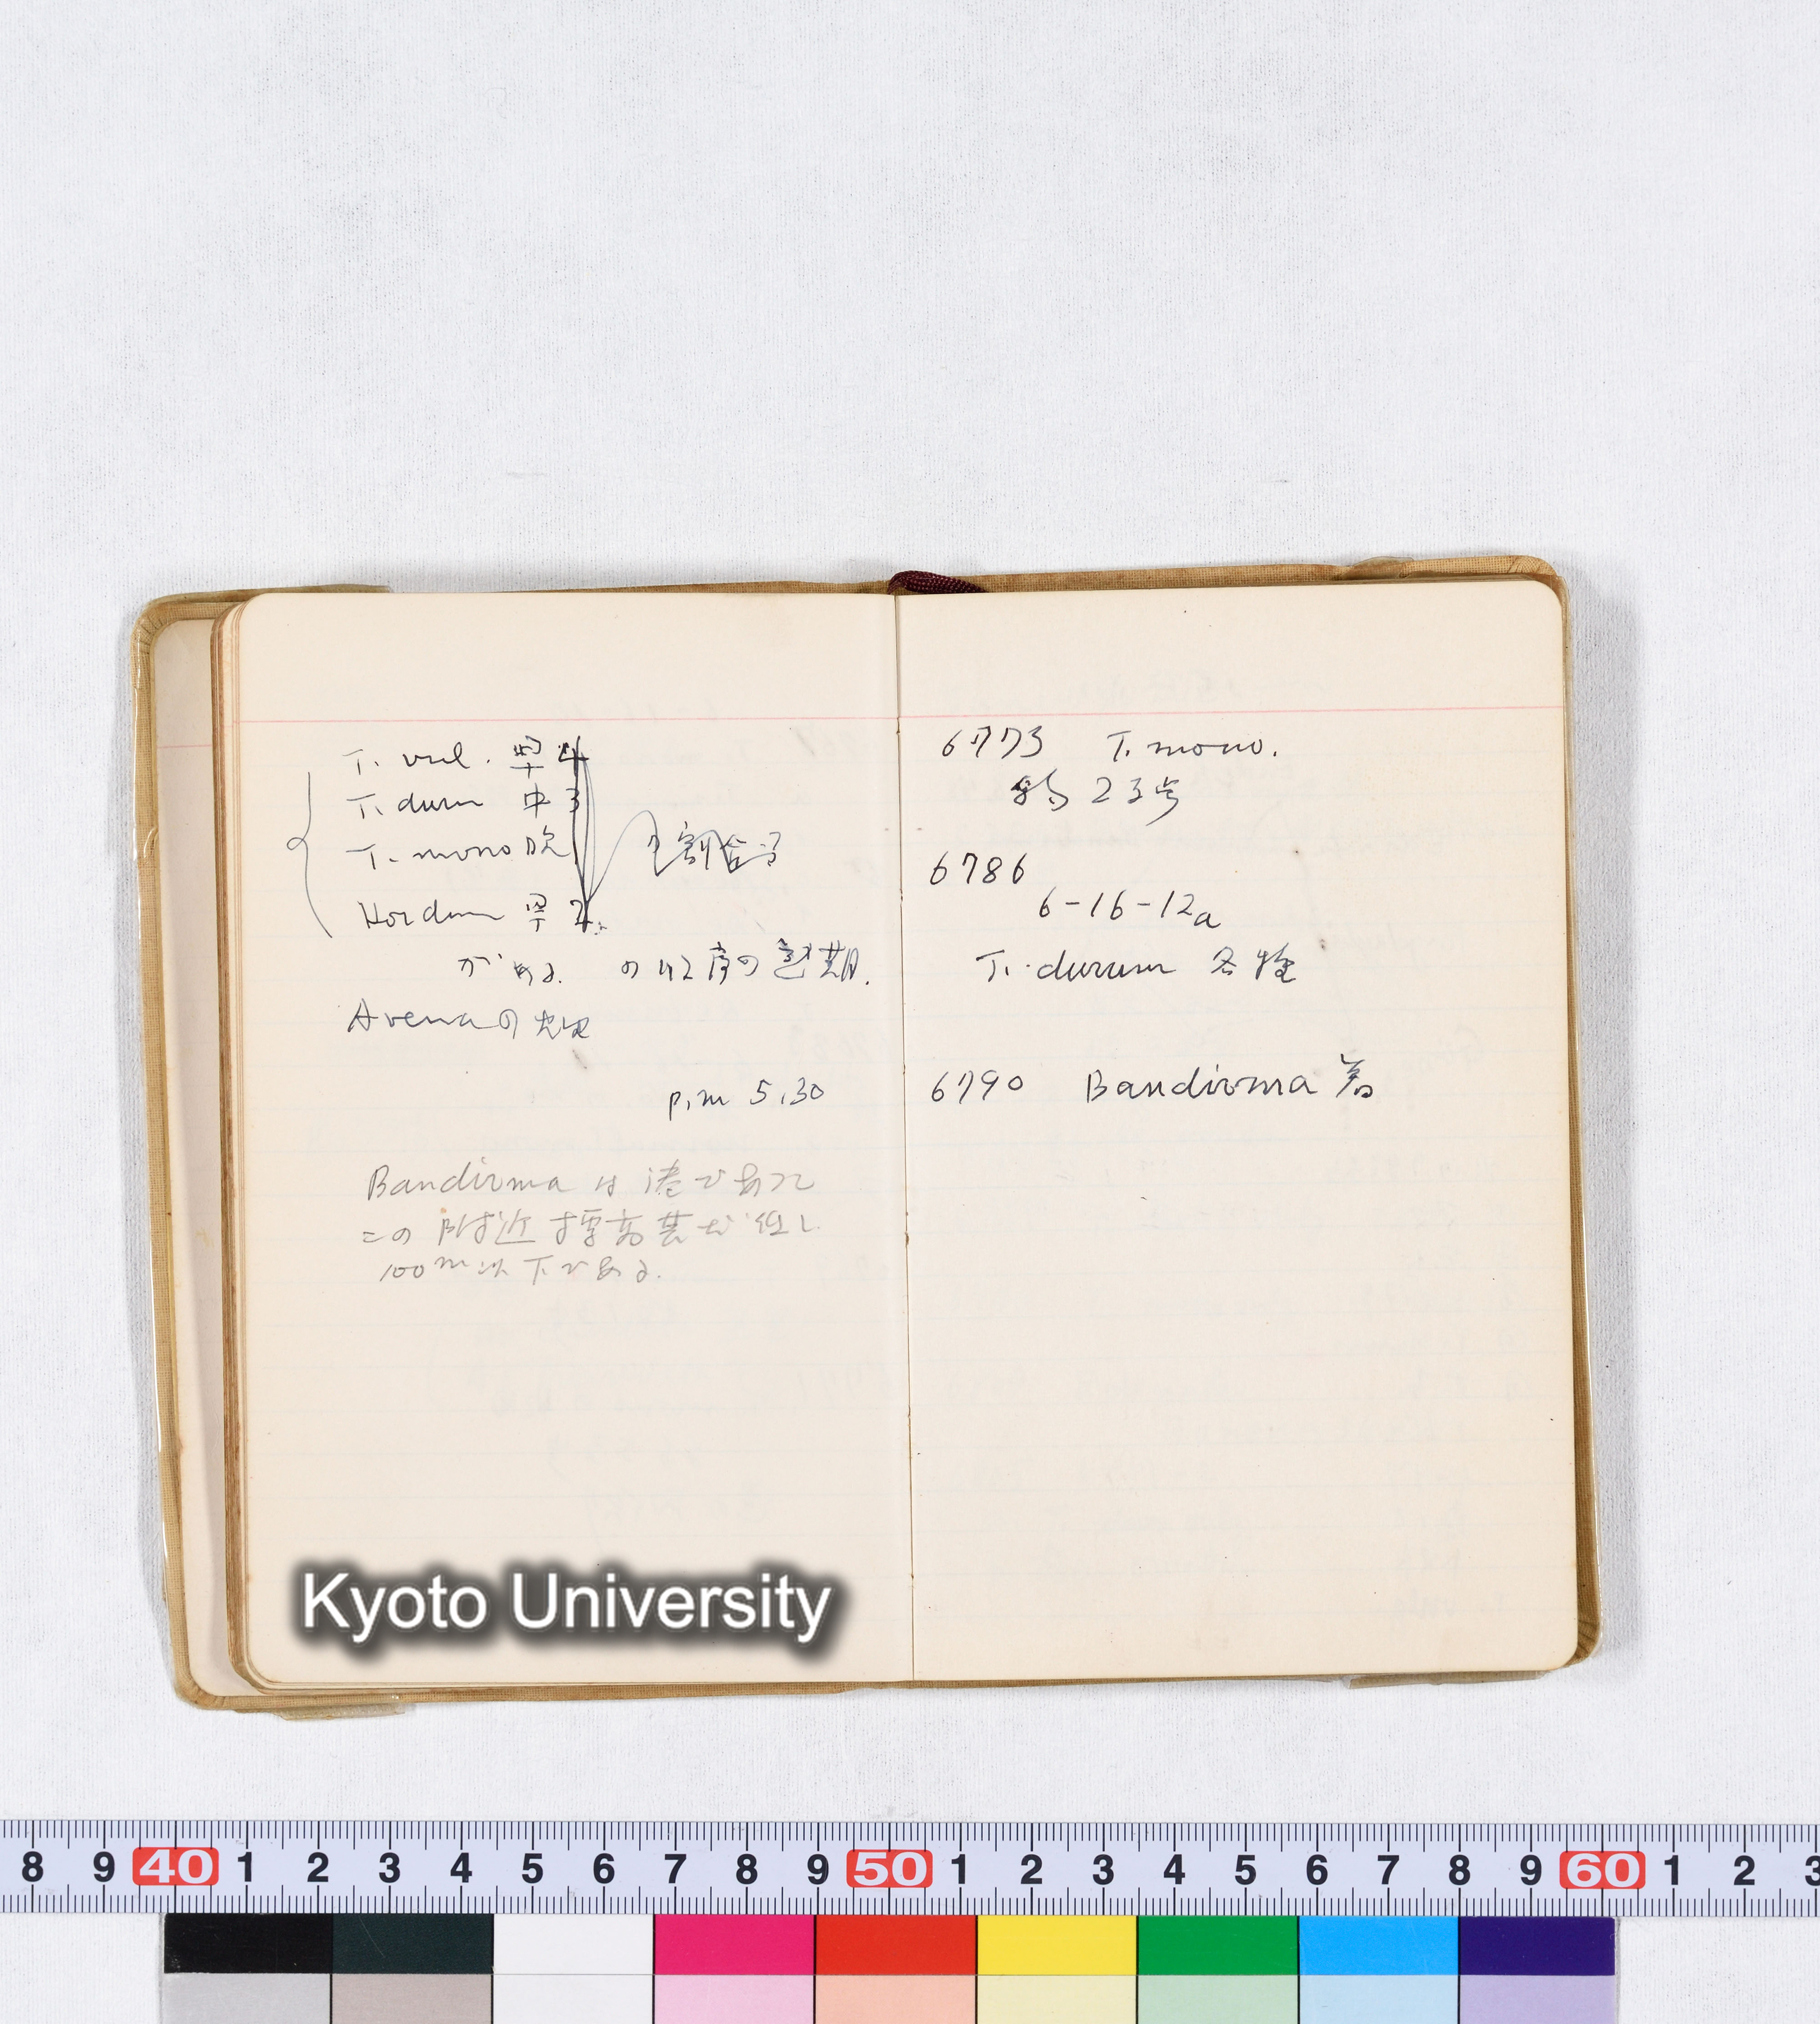 T. vul. 早 4
T. durum 中 3
T. mono 晩
Hordeum 早 2
がある. の順序の熟期.
Avenaの
p.m 5.30
Bandirma は港であって
この附近標高甚だ低し
100m以下である.
6773 T. mono.
23号
6786
6-16-12a
T. durum 各種
6790 Bandirma 着
Kyoto University
8 9 40 1 2 3 4 5 6 7 8 9 50 1 2 3 4 5 6 7 8 9 60 1 2 3